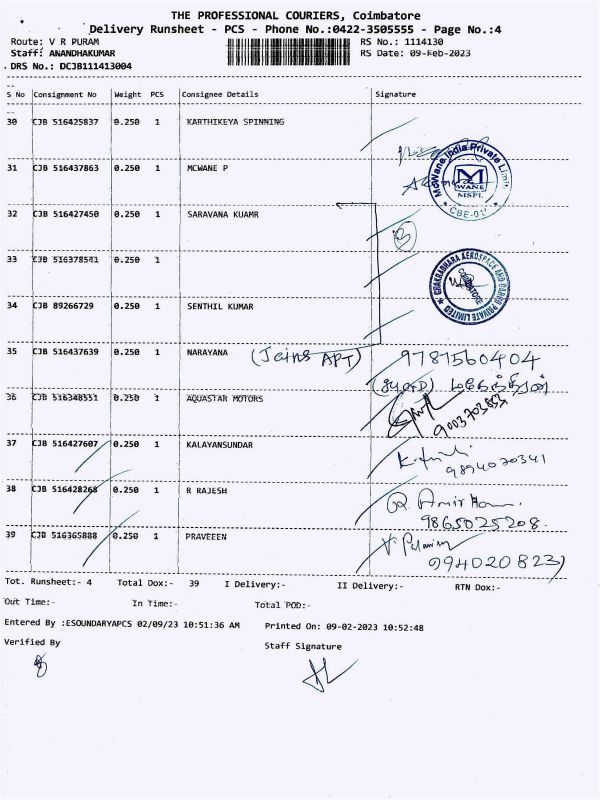 THE PROFESSIONAL COURIERS, Coimbatore
Delivery Runsheet - PCS - Phone No.:0422-3505555 - Page No.:4
Route: V R PURAM RS No.: 1114130
Staff: ANANDHAKUMAR RS Date: 09-Feb-2023
DRS No.: DCJB111413004
S No Consignment No Weight PCS Consignee Details Signature
30 CJB 516425837 0.250 1 KARTHIKEYA SPINNING
31 CJB 516437863 0.250 1 MCWANE P
McWane India Private Limit
WANE
MSPL
* CBE-01 *
32 CJB 516427450 0.250 1 SARAVANA KUAMR
3
33 CJB 516378541 0.250 1
CHAKRADHARA AEROSPACE AND CARGO PRIVATE LIMITED
COIMBATORE
34 CJB 89266729 0.250 1 SENTHIL KUMAR
35 CJB 516437639 0.250 1 NARAYANA (Jains APT) 9787560404
36 CJB 516348551 0.250 1 AQUASTAR MOTORS
9003703853
37 CJB 516427607 0.250 1 KALAYANSUNDAR
9894070341
38 CJB 516428268 0.250 1 R RAJESH
9865025208.
39 CJB 516365888 0.250 1 PRAVEEEN
Tot. Runsheet:- 4 Total Dox:- 39 I Delivery:- II Delivery:- RTN Dox:-
Out Time:- In Time:- Total POD:-
Entered By :ESOUNDARYAPCS 02/09/23 10:51:36 AM Printed On: 09-02-2023 10:52:48
Verified By Staff Signature